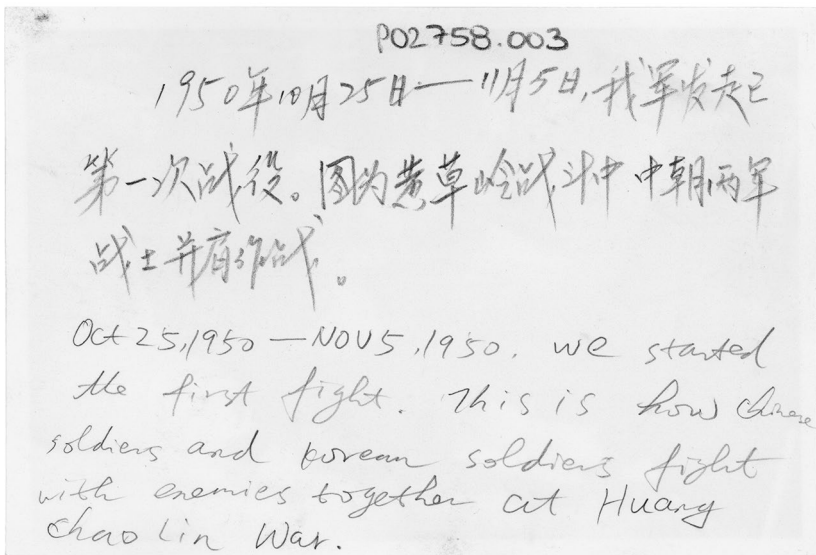 P02758.003
1950年10月25日——11月5日,我军发起
第一次战役。图为黄草岭战斗中 中朝两军
战士并肩作战。
Oct 25,1950 — NOV 5,1950. we started
the first fight. This is how chinese
soldiers and korean soldiers fight
with enemies together at Huang
chao Lin War.